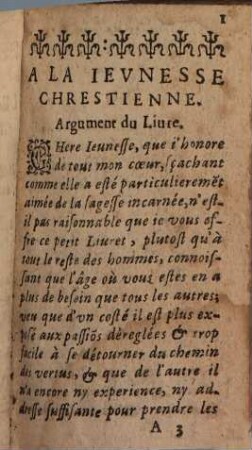 1
A LA IEVNESSE
CHRESTIENNE.
Argument du Liure.
CHere Ieunesse, que i'honore
de tout mon cœur, sçachant
comme elle a esté particulieremēt
aimée de la sagesse incarnée, n'est-
il pas raisonnable que ie vous of-
fre ce petit Liuret, plutost qu'à
tout le reste des hommes, connois-
sant que l'âge où vous estes en a
plus de besoin que tous les autres;
veu que d'vn costé il est plus ex-
posé aux passiõs déreglées & trop
facile à se détourner du chemin
des vertus, & que de l'autre il
n'a encore ny experience, ny ad-
dresse suffisante pour prendre les
A 3